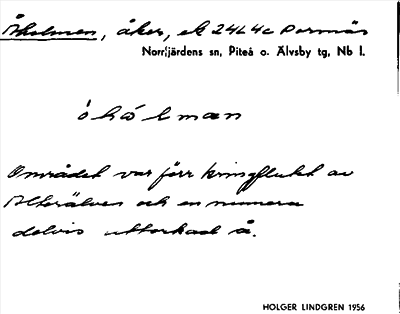 Åholmen, åker, ek 24L4c Porsnäs
Norrfjärdens sn, Piteå o. Älvsby tg, Nb l.
óhólman
Området var förr kringflutet av
Alterälven och en numera
delvis uttorkad å.
HOLGER LINDGREN 1956